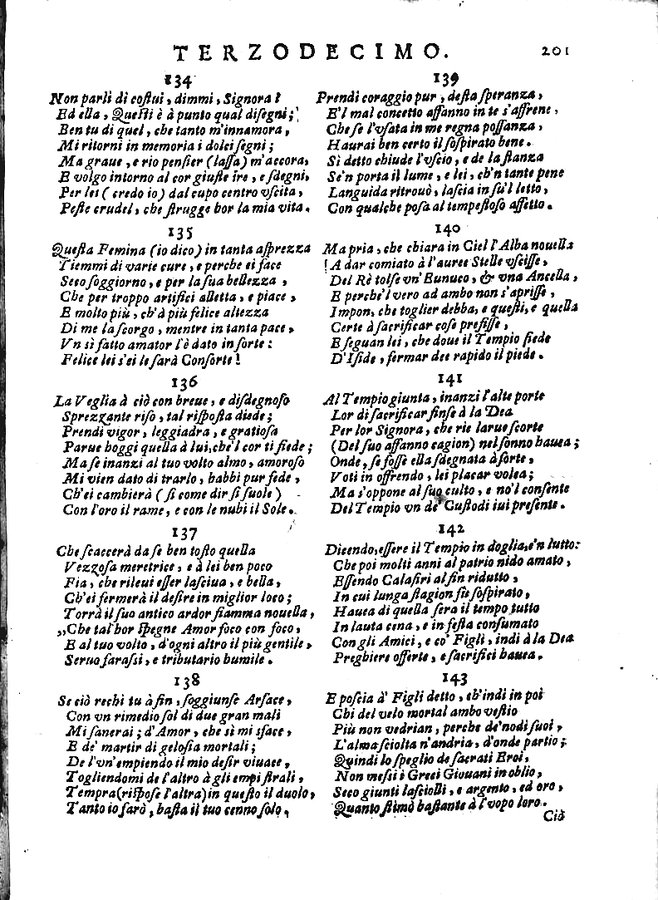 TERZODECIMO. 201
134
Non parli di costui, dimmi, Signora?
Ed ella, Questi è à punto qual disegni;
Ben tu di quel, che tanto m'innamora,
Mi ritorni in memoria i dolci segni;
Ma graue, e rio pensier (lassa) m'accora,
E volgo intorno al cor giuste ire, e sdegni,
Per lei (credo io) dal cupo centro vscita,
Peste crudel, che strugge hor la mia vita.
135
Questa Femina (io dico) in tanta asprezza
Tiemmi di varie cure, e perche ei face
Seco soggiorno, e per la sua bellezza,
Che per troppo artifici alletta, e piace,
E molto più, ch'à più felice altezza
Di me la scorgo, mentre in tanta pace,
Vn sì fatto amator l'è dato in sorte:
Felice lei s'ei le sarà Consorte!
136
La Veglia à ciò con breue, e disdegnoso
Sprezzante riso, tal risposta diede;
Prendi vigor, leggiadra, e gratiosa
Parue hoggi quella à lui, che'l cor ti fiede;
Ma se inanzi al tuo volto almo, amoroso
Mi vien dato di trarlo, habbi pur fede,
Ch'ei cambierà (sì come dir si suole)
Con l'oro il rame, e con le nubi il Sole.
137
Che scaccerà da se ben tosto quella
Vezzosa meretrice, e à lei ben poco
Fia, che rileui esser lasciua, e bella,
Ch'ei fermerà il desire in miglior loco;
Torrà il suo antico ardor fiamma nouella,
„Che talhor spegne Amor foco con foco,
E al tuo volto, d'ogni altro il più gentile,
Seruo farassi, e tributario humile.
138
Se ciò rechi tu à fin, soggiunse Arsace,
Con vn rimedio sol di due gran mali
Mi sanerai; d'Amor, che sì mi sface,
E de' martir di gelosia mortali;
De l'vn'empiendo il mio desir viuace,
Togliendomi de l'altro à gli empi strali,
Tempra (rispose l'altra) in questo il duolo,
Tanto io farò, basta il tuo cenno solo,
139
Prendi coraggio pur, desta speranza,
E'l mal concetto affanno in te s'affrene,
Che se l'vsata in me regna possanza,
Haurai ben certo il sospirato bene.
Sì detto chiude l'vscio, e de la stanza
Se'n porta il lume, e lei, ch'n tante pene
Languida ritrouò, lascia in su'l letto,
Con qualche posa al tempestoso affetto.
140
Ma pria, che chiara in Ciel l'Alba nouella
A dar comiato à l'auree Stelle vscisse,
Del Rè tolse vn'Eunuco, & vna Ancella,
E perche'l vero ad ambo non s'aprisse,
Impon, che toglier debba, e questi, e quella
Certe à sacrificar cose prefisse,
E seguan lei, che doue il Tempio siede
D'Iside, fermar dee rapido il piede.
141
Al Tempio giunta, inanzi l'alte porte
Lor di sacrificar finse à la Dea
Per lor Signora, che rie larue scorte
(Del suo affanno cagion) nel sonno hauea;
Onde, se fosse ella sdegnata à sorte,
Voti in offrendo, lei placar volea;
Ma s'oppone al suo culto, e no'l consente
Del Tempio vn de' Custodi iui presente.
142
Dicendo, essere il Tempio in doglia, e'n lutto:
Che poi molti anni al patrio nido amato,
Essendo Calasiri al fin ridutto,
In cui lunga stagion fù sospirato,
Hauea di quella sera il tempo tutto
In lauta cena, e in festa consumato
Con gli Amici, e co' Figli, indi à la Dea
Preghiere offerte, e sacrifici hauea.
143
E poscia à' Figli detto, ch'indi in poi
Chi del velo mortal ambo vestio
Più non vedrian, perche de' nodi suoi,
L'alma sciolta n'andria, d'onde partio;
Quindi lo speglio de sacrati Eroi,
Non messi i Greci Giouani in oblio,
Seco giunti lasciolli, e argento, ed oro,
Quanto stimò bastante à l'vopo loro.
Ciò